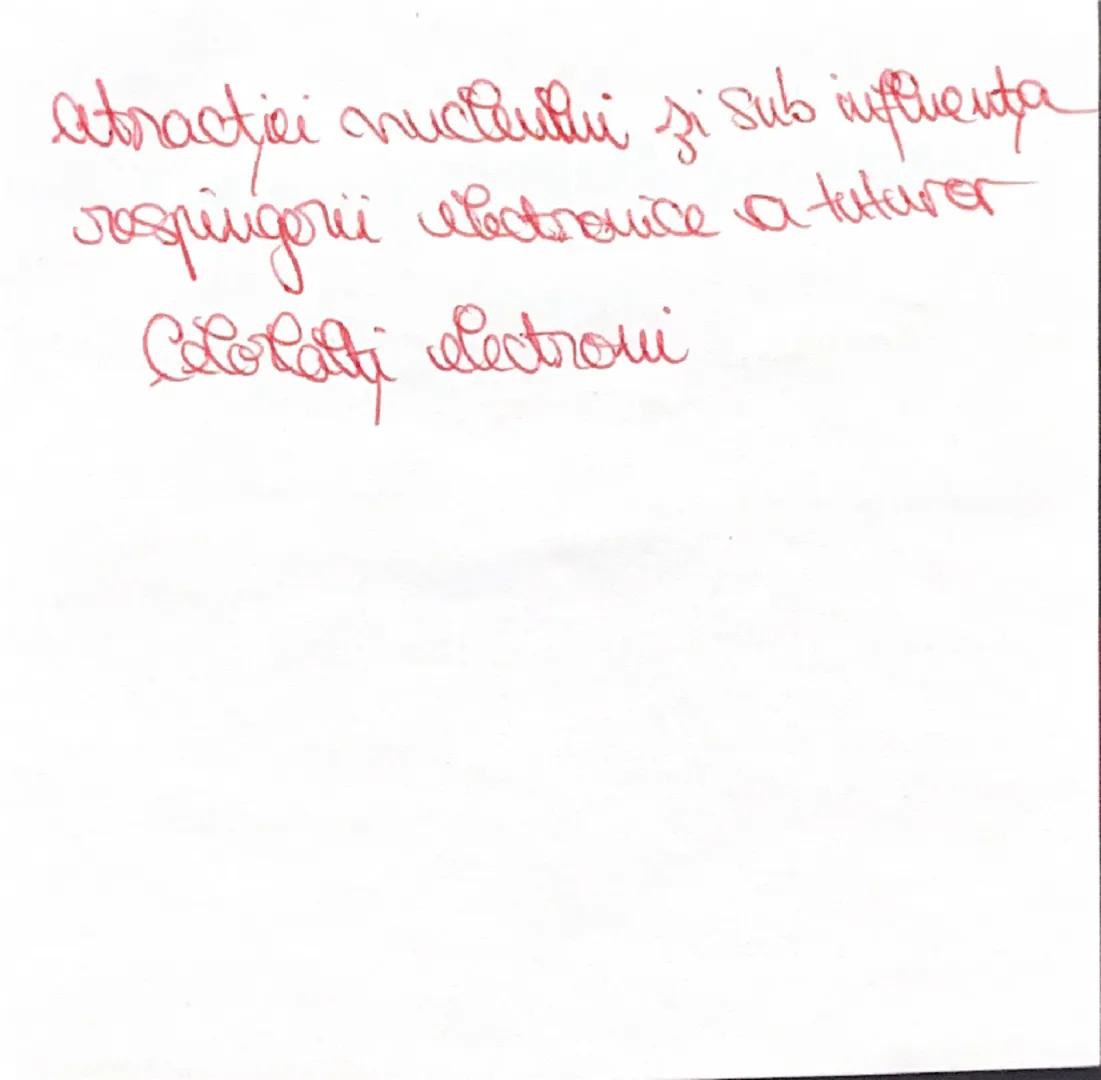 atracției nucleului și sub influența
respingerii electronice a tuturor
Celorlalți electroni